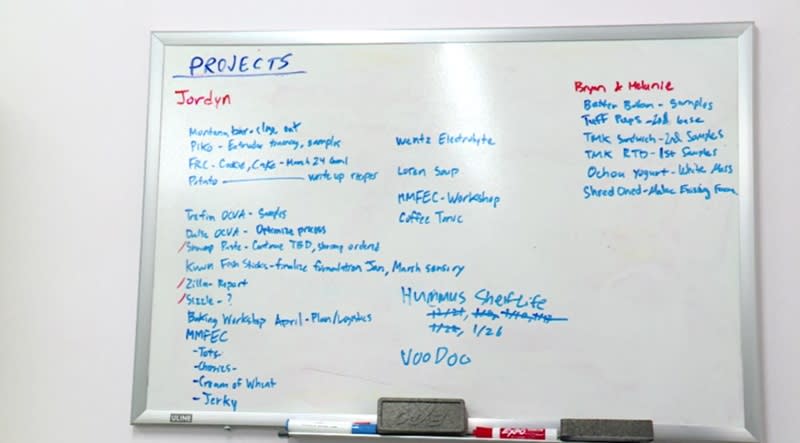 PROJECTS
Jordyn
Montana bar - close out
Piko - Extruder training, samples
FRC - Cookie, Cake - March 24 Goal
Potato write up recipes
Trefin OCVA - Samples
OCVA - Optimize process
/Shrimp Paste - Continue TBD, shrimp ordered
Fish Sticks - finalize formulation Jan, March sensory
/Zilla - Report
/Sizzle - ?
Baking Workshop April - Plan/Logistics
MMFEC
- Tots
- Cherries -
- Cream of Wheat
- Jerky
Wentz Electrolyte
Loren Soup
MMFEC - Workshop
Coffee Tonic
Hummus Shelf Life
1/26
VooDoo
Bryan & Melanie
Batter - Samples
Tuff Pups - 2nd base
TMK Sandwich - 2nd Samples
TMK RTD - 1st Samples
Ochou Yogurt - White Mass
Shred Oned - Make Existing
ULINE
EXPO